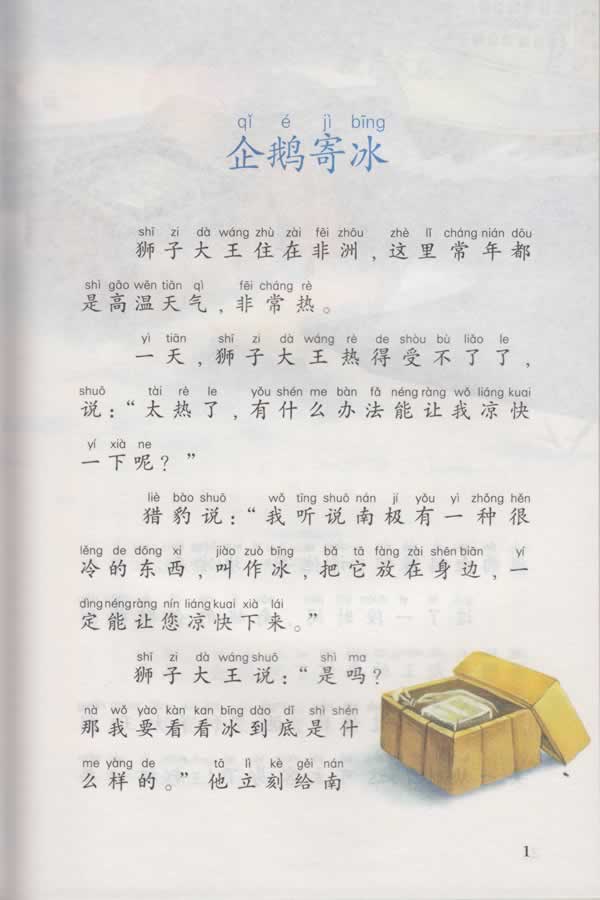 qǐ é jì bīng
企鹅寄冰
shī zi dà wáng zhù zài fēi zhōu zhè lǐ cháng nián dōu
狮子大王住在非洲，这里常年都
shì gāo wēn tiān qì fēi cháng rè
是高温天气，非常热。
yì tiān shī zi dà wáng rè de shòu bù liǎo le
一天，狮子大王热得受不了了，
shuō tài rè le yǒu shén me bàn fǎ néng ràng wǒ liáng kuai
说：“太热了，有什么办法能让我凉快
yí xià ne
一下呢？”
liè bào shuō wǒ tīng shuō nán jí yǒu yì zhǒng hěn
猎豹说：“我听说南极有一种很
lěng de dōng xi jiào zuò bīng bǎ tā fàng zài shēn biān yí
冷的东西，叫作冰，把它放在身边，一
dìng néng ràng nín liáng kuai xià lái
定能让您凉快下来。”
shī zi dà wáng shuō shì ma
狮子大王说：“是吗？
nà wǒ yào kàn kan bīng dào dǐ shì shén
那我要看看冰到底是什
me yàng de tā lì kè gěi nán
么样的。”他立刻给南
1